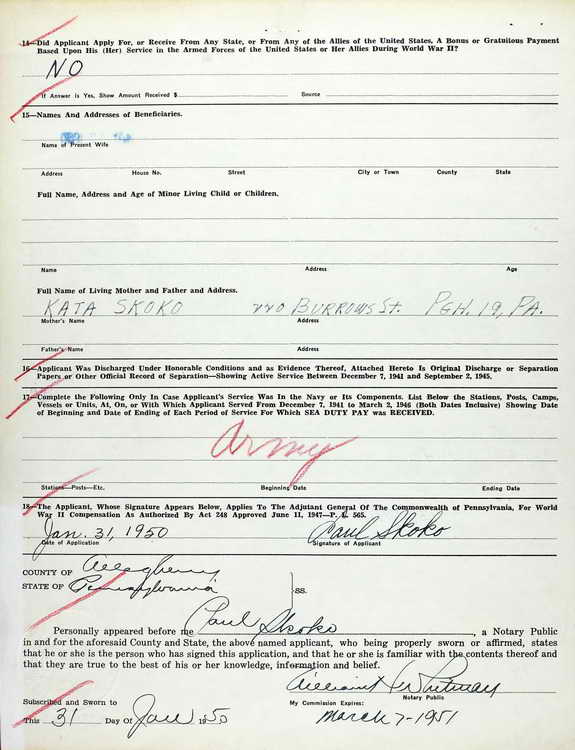 14—Did Applicant Apply For, or Receive From Any State, or From Any of the Allies of the United States, A Bonus or Gratuitous Payment
Based Upon His (Her) Service in the Armed Forces of the United States or Her Allies During World War II?
NO
If Answer is Yes, Show Amount Received $ Source
15—Names And Addresses of Beneficiaries.
Name of Present Wife
Address House No. Street City or Town County State
Full Name, Address and Age of Minor Living Child or Children.
Name Address Age
Full Name of Living Mother and Father and Address.
KATA SKOKO 220 BURROWS St. PGH. 19, PA.
Mother's Name Address
Father's Name Address
16—Applicant Was Discharged Under Honorable Conditions and as Evidence Thereof, Attached Hereto Is Original Discharge or Separation
Papers or Other Official Record of Separation—Showing Active Service Between December 7, 1941 and September 2, 1945.
17—Complete the Following Only In Case Applicant's Service Was In the Navy or Its Components. List Below the Stations, Posts, Camps,
Vessels or Units, At, On, or With Which Applicant Served From December 7, 1941 to March 2, 1946 (Both Dates Inclusive) Showing Date
of Beginning and Date of Ending of Each Period of Service For Which SEA DUTY PAY was RECEIVED.
Army
Stations—Posts—Etc. Beginning Date Ending Date
18—The Applicant, Whose Signature Appears Below, Applies To The Adjutant General Of The Commonwealth of Pennsylvania, For World
War II Compensation As Authorized By Act 248 Approved June 11, 1947—P. L. 565.
Jan. 31, 1950 Paul Skoko
Date of Application Signature of Applicant
COUNTY OF Allegheny
STATE OF Pennsylvania SS.
Personally appeared before me Paul Skoko, a Notary Public
in and for the aforesaid County and State, the above named applicant, who being properly sworn or affirmed, states
that he or she is the person who has signed this application, and that he or she is familiar with the contents thereof and
that they are true to the best of his or her knowledge, information and belief.
Whitman
Notary Public
Subscribed and Sworn to My Commission Expires:
This 31 Day Of Jan 1950 March 7-1951